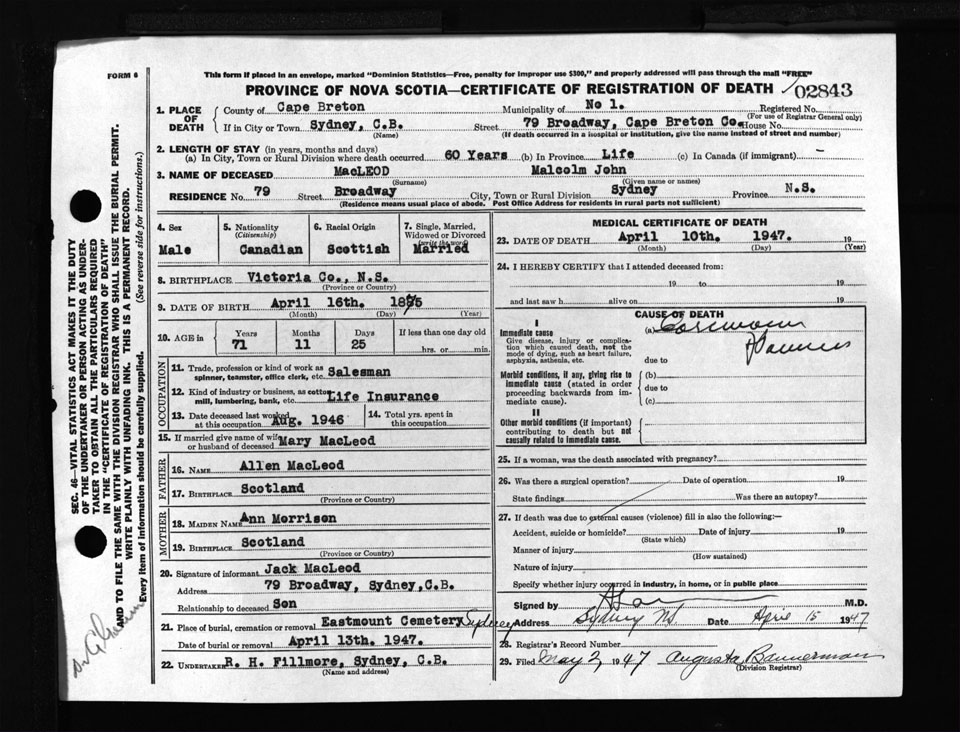 FORM 6
This form if placed in an envelope, marked "Dominion Statistics—Free, penalty for improper use $300," and properly addressed will pass through the mail "FREE"
PROVINCE OF NOVA SCOTIA—CERTIFICATE OF REGISTRATION OF DEATH 02843
1. PLACE OF DEATH
County of Cape Breton Municipality of No 1. Registered No.
(For use of Registrar General only)
If in City or Town Sydney, C.B. Street 79 Broadway, Cape Breton Co. House No.
(Name) (If death occurred in a hospital or institution, give the name instead of street and number)
2. LENGTH OF STAY (in years, months and days)
(a) In City, Town or Rural Division where death occurred 60 Years (b) In Province Life (c) In Canada (if immigrant) —
3. NAME OF DECEASED MacLEOD Malcolm John
(Surname) (Given name or names)
RESIDENCE No. 79 Street Broadway City, Town or Rural Division Sydney Province N.S.
(Residence means usual place of abode. Post Office Address for residents in rural parts not sufficient)
4. Sex
Male
5. Nationality
(Citizenship)
Canadian
6. Racial Origin
Scottish
7. Single, Married,
Widowed or Divorced
(write the word)
Married
8. BIRTHPLACE Victoria Co., N.S.
(Province or Country)
9. DATE OF BIRTH April 16th. 1875
(Month) (Day) (Year)
10. AGE in
Years Months Days If less than one day old
71 11 25 hrs. or min.
OCCUPATION
11. Trade, profession or kind of work as
spinner, teamster, office clerk, etc. Salesman
12. Kind of industry or business, as cotton
mill, lumbering, bank, etc. Life Insurance
13. Date deceased last worked
at this occupation Aug. 1946
14. Total yrs. spent in
this occupation
15. If married give name of wife
or husband of deceased Mary MacLeod
FATHER
16. NAME Allen MacLeod
17. BIRTHPLACE Scotland
(Province or Country)
MOTHER
18. MAIDEN NAME Ann Morrison
19. BIRTHPLACE Scotland
(Province or Country)
20. Signature of informant Jack MacLeod
Address 79 Broadway, Sydney, C.B.
Relationship to deceased Son
21. Place of burial, cremation or removal Eastmount Cemetery Sydney
Date of burial or removal April 13th. 1947.
22. UNDERTAKER R. H. Fillmore, Sydney, C.B.
(Name and address)
MEDICAL CERTIFICATE OF DEATH
23. DATE OF DEATH April 10th. 1947. 19
(Month) (Day) (Year)
24. I HEREBY CERTIFY that I attended deceased from:
19 to 19
and last saw h alive on 19
CAUSE OF DEATH
I
Immediate cause
Give disease, injury or complication which caused death, not the
mode of dying, such as heart failure,
asphyxia, asthenia, etc.
(a)
due to
Morbid conditions, if any, giving rise to
immediate cause (stated in order
proceeding backwards from immediate cause).
(b)
due to
(c)
II
Other morbid conditions (if important)
contributing to death but not
causally related to immediate cause.
25. If a woman, was the death associated with pregnancy?
26. Was there a surgical operation? Date of operation 19
State findings Was there an autopsy?
27. If death was due to external causes (violence) fill in also the following:—
Accident, suicide or homicide? Date of injury 19
(State which)
Manner of injury
(How sustained)
Nature of injury
Specify whether injury occurred in industry, in home, or in public place
Signed by M.D.
Address Sydney N.S. Date April 15 1947
28. Registrar's Record Number
29. Filed May 2 1947 Augusta Bannerman
(Division Registrar)
SEC. 46—VITAL STATISTICS ACT MAKES IT THE DUTY
OF THE UNDERTAKER OR PERSON ACTING AS UNDERTAKER TO OBTAIN ALL THE PARTICULARS REQUIRED
IN THE "CERTIFICATE OF REGISTRATION OF DEATH"
AND TO FILE THE SAME WITH THE DIVISION REGISTRAR WHO SHALL ISSUE THE BURIAL PERMIT.
WRITE PLAINLY WITH UNFADING INK. THIS IS A PERMANENT RECORD.
Every item of information should be carefully supplied. (See reverse side for instructions.)